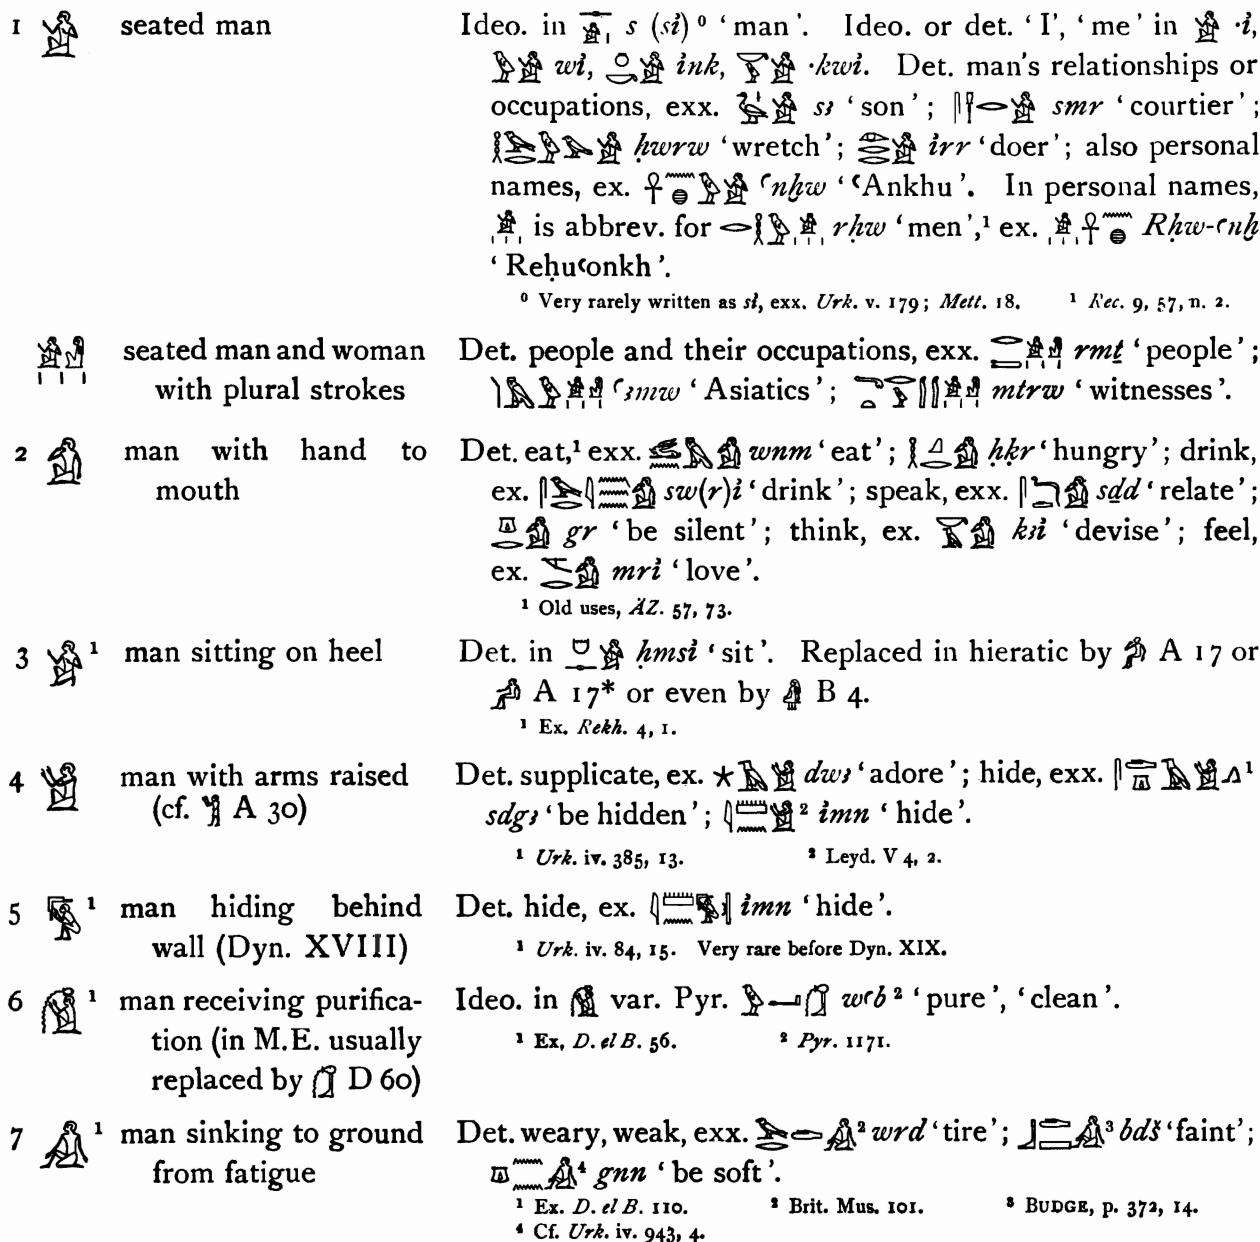 1 𓀀 seated man Ideo. in 𓊃𓀀𓏤 s (sἰ)⁰ ‘man’. Ideo. or det. ‘I’, ‘me’ in 𓀀 ·ἰ,
𓅱𓀀 wἰ, 𓏌𓎡𓀀 ἰnk, 𓎡𓅱𓀀 ·kwἰ. Det. man’s relationships or
occupations, exx. 𓅭𓀀 sꜣ ‘son’; 𓋴𓌂𓂋𓀀 smr ‘courtier’;
𓎛𓅨𓂋𓅱𓅪𓀀 ḥwrw ‘wretch’; 𓁹𓂋𓂋𓀀 ἰrr ‘doer’; also personal
names, ex. 𓋹𓈖𓐍𓅱𓀀 ꜥnḫw ‘ꜥAnkhu’. In personal names,
𓀀𓏥 is abbrev. for 𓂋𓎛𓅱𓀀𓏥 rḥw ‘men’,¹ ex. 𓀀𓏥𓋹𓈖𓐍 Rḥw-ꜥnḫ
‘Reḥuꜥonkh’.
⁰ Very rarely written as sἰ, exx. Urk. v. 179; Mett. 18. ¹ Rec. 9, 57, n. 2.
𓀀𓁐𓏥 seated man and woman Det. people and their occupations, exx. 𓂋𓍿𓀀𓁐𓏥 rmṯ ‘people’;
with plural strokes 𓌙𓅓𓅱𓀀𓁐𓏥 ꜥꜣmw ‘Asiatics’; mtrw ‘witnesses’.
2 𓀁 man with hand to Det. eat,¹ exx. 𓃹𓈖𓅓𓀁 wnm ‘eat’; 𓎛𓈎𓂋𓀁 ḥḳr ‘hungry’; drink,
mouth ex. 𓋴𓅨𓇋𓈗𓀁 sw(r)ἰ ‘drink’; speak, exx. 𓋴𓆓𓂧𓀁 sḏd ‘relate’;
𓎼𓂋𓀁 gr ‘be silent’; think, ex. 𓂓𓄿𓀁 kꜣἰ ‘devise’; feel,
ex. 𓌻𓂋𓀁 mrἰ ‘love’.
¹ Old uses, ÄZ. 57, 73.
3 𓀂 ¹ man sitting on heel Det. in ḥmsἰ ‘sit’. Replaced in hieratic by 𓀔 A 17 or
𓀕 A 17* or even by 𓁓 B 4.
¹ Ex. Rekh. 4, 1.
4 𓀃 man with arms raised Det. supplicate, ex. 𓇼𓄿𓀃 dwꜣ ‘adore’; hide, exx. 𓋴𓂧𓎼𓄿𓀃𓂻¹
(cf. 𓀢 A 30) sdgꜣ ‘be hidden’; 𓇋𓏠𓈖𓀃² ἰmn ‘hide’.
¹ Urk. iv. 385, 13. ² Leyd. V 4, 2.
5 𓀄 ¹ man hiding behind Det. hide, ex. 𓇋𓏠𓈖𓀄 ἰmn ‘hide’.
wall (Dyn. XVIII) ¹ Urk. iv. 84, 15. Very rare before Dyn. XIX.
6 𓀆 ¹ man receiving purifica- Ideo. in 𓀆 var. Pyr. 𓅱𓂝𓃂 wꜥb² ‘pure’, ‘clean’.
tion (in M.E. usually ¹ Ex, D. el B. 56. ² Pyr. 1171.
replaced by 𓃂 D 60)
7 𓀉 ¹ man sinking to ground Det. weary, weak, exx. 𓅨𓂋𓂧𓀉² wrd ‘tire’; 𓃀𓂧𓈙𓀉³ bdš ‘faint’;
from fatigue 𓎼𓈖𓈖𓀉⁴ gnn ‘be soft’.
¹ Ex. D. el B. 110. ² Brit. Mus. 101. ³ BUDGE, p. 372, 14.
⁴ Cf. Urk. iv. 943, 4.